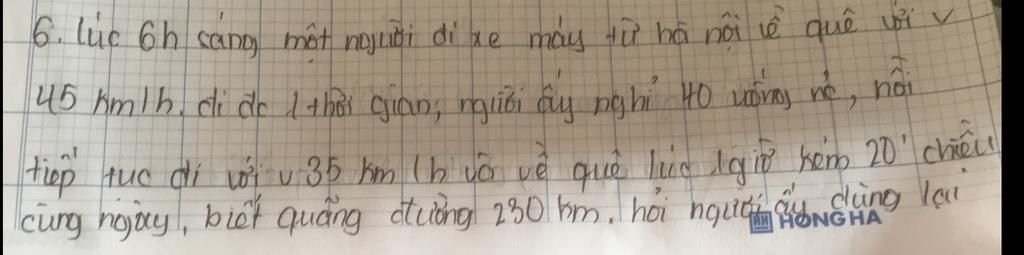 6. lúc 6h sáng một người đi xe máy từ hà nội về quê với v
45 km/h. đi đc 1 thời gian, người ấy nghỉ 40 uống nc, rồi
tiếp tục đi với v 35 km/h và về quê lúc 1giờ kém 20' chiều
cùng ngày, biết quãng đường 230 km. hỏi người ấy dừng lại
HONG HA